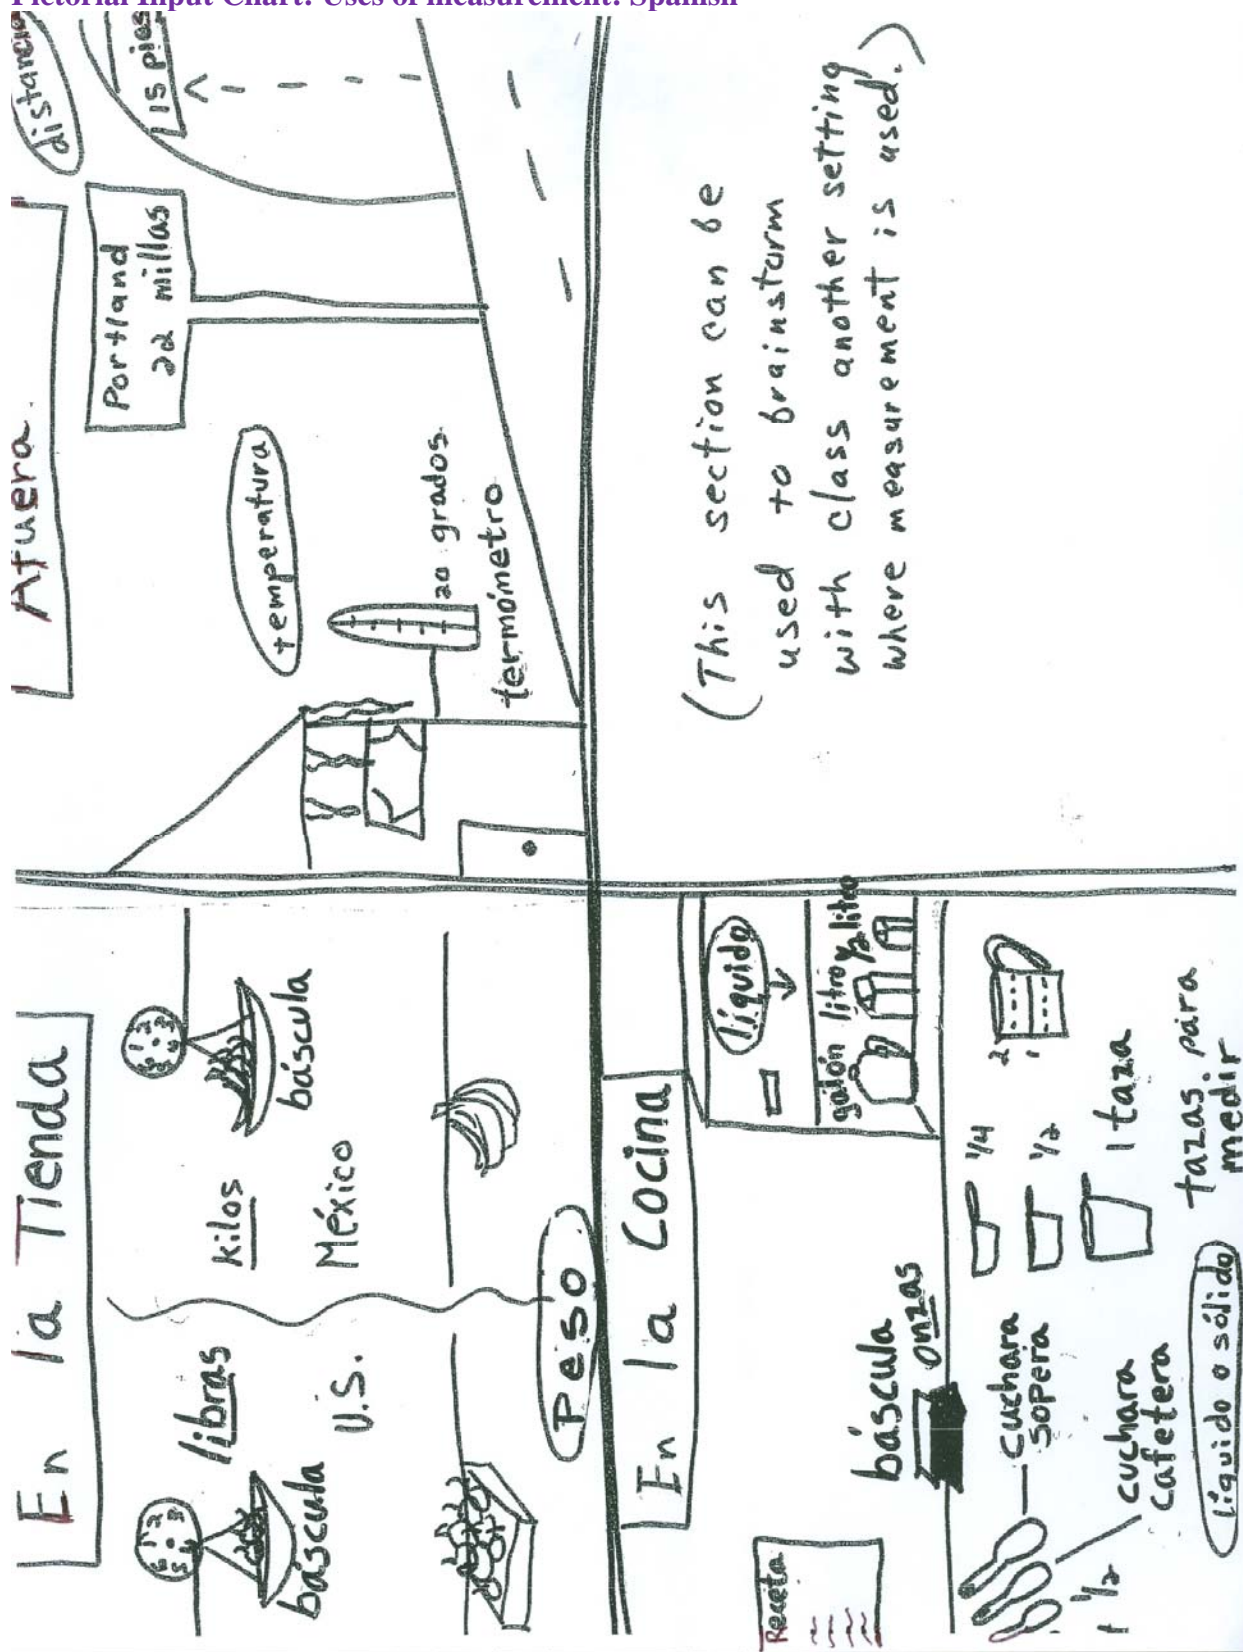 Pictorial Input Chart: Uses of measurement: Spanish
En la Tienda
libras
báscula
U.S.
kilos
México
báscula
Peso
Afuera.
distancia
15 pies
Portland
22 millas
temperatura
20 grados
termómetro
En la Cocina
líquido
galón litro ½ litro
Receta
báscula
onzas
cuchara
sopera
cuchara
cafetera
1 ½
¼
½
1 taza
2
1
tazas para
medir
líquido o sólido
(This section can be
used to brainstorm
with class another setting
where measurement is used.)